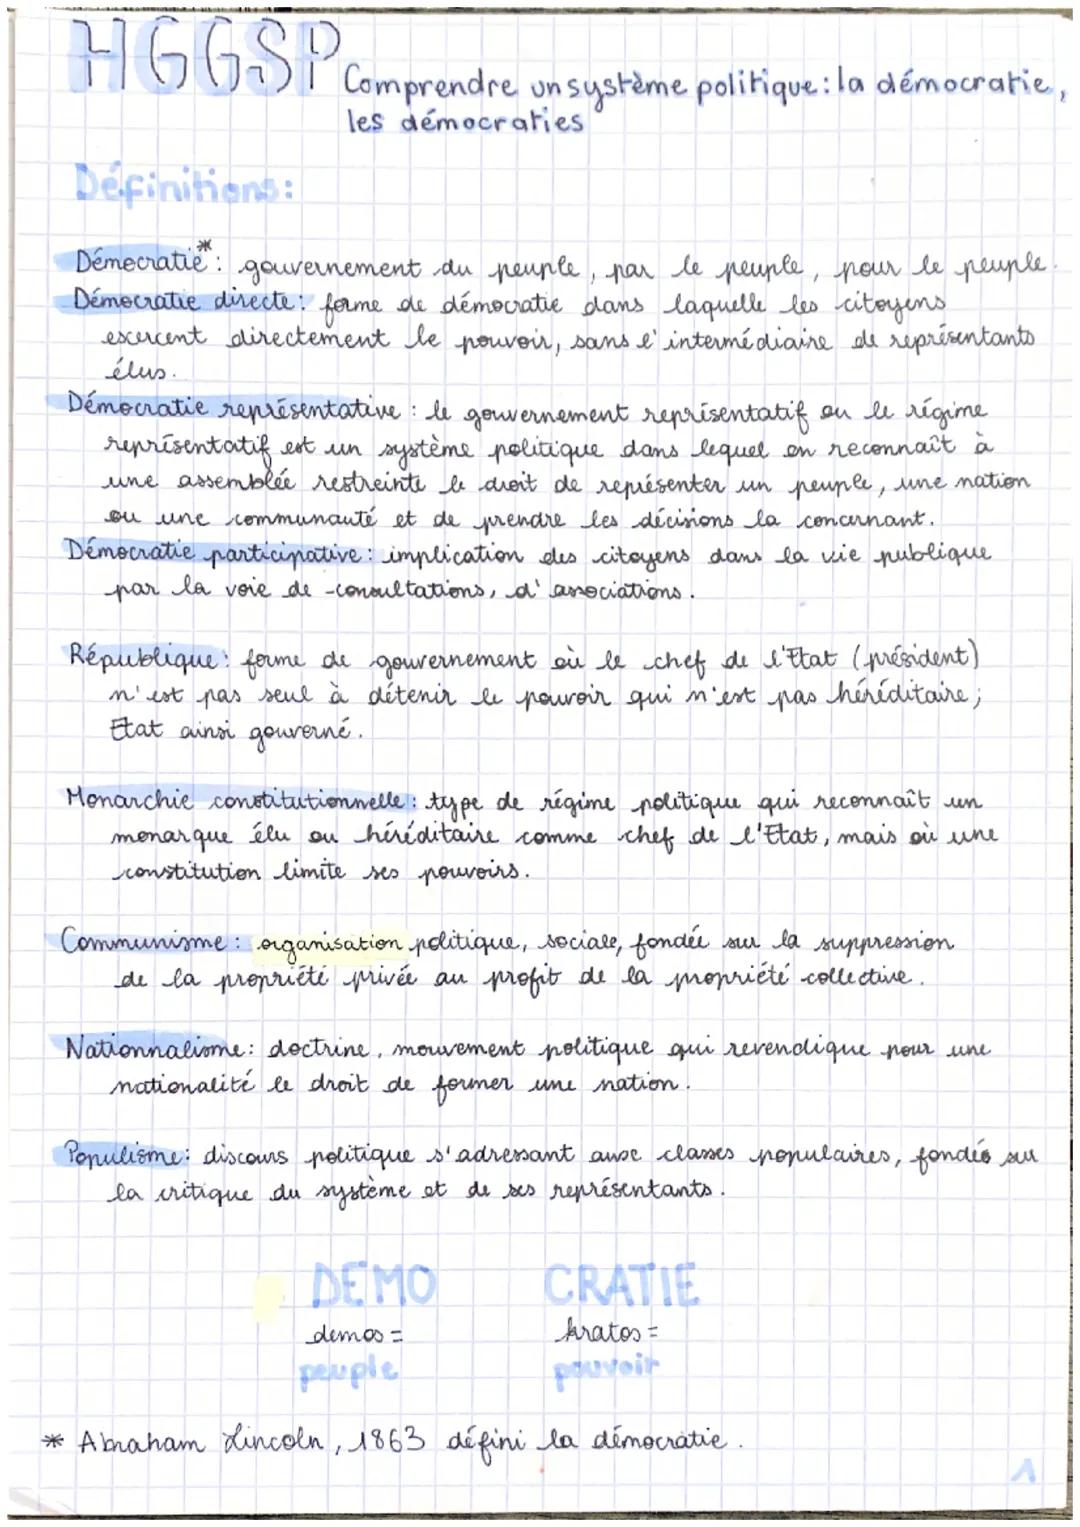 HGGSP
Comprendre un système politique : la démocratie,
les démocraties
Définitions :
Démocratie* : gouvernement du peuple, par le peuple, pour le peuple.
Démocratie directe : forme de démocratie dans laquelle les citoyens
exercent directement le pouvoir, sans l'intermédiaire de représentants
élus.
Démocratie représentative : le gouvernement représentatif ou le régime
représentatif est un système politique dans lequel on reconnaît à
une assemblée restreinte le droit de représenter un peuple, une nation
ou une communauté et de prendre les décisions la concernant.
Démocratie participative : implication des citoyens dans la vie publique
par la voie de consultations, d'associations.
République : forme de gouvernement où le chef de l'Etat (président)
n'est pas seul à détenir le pouvoir qui n'est pas héréditaire ;
Etat ainsi gouverné.
Monarchie constitutionnelle : type de régime politique qui reconnaît un
monarque élu ou héréditaire comme chef de l'Etat, mais où une
constitution limite ses pouvoirs.
Communisme : organisation politique, sociale, fondée sur la suppression
de la propriété privée au profit de la propriété collective.
Nationnalisme : doctrine, mouvement politique qui revendique pour une
nationalité le droit de former une nation.
Populisme : discours politique s'adressant aux classes populaires, fondés sur
la critique du système et de ses représentants.
DEMO CRATIE
demos = kratos =
peuple pouvoir
* Abraham Lincoln, 1863 défini la démocratie.
1